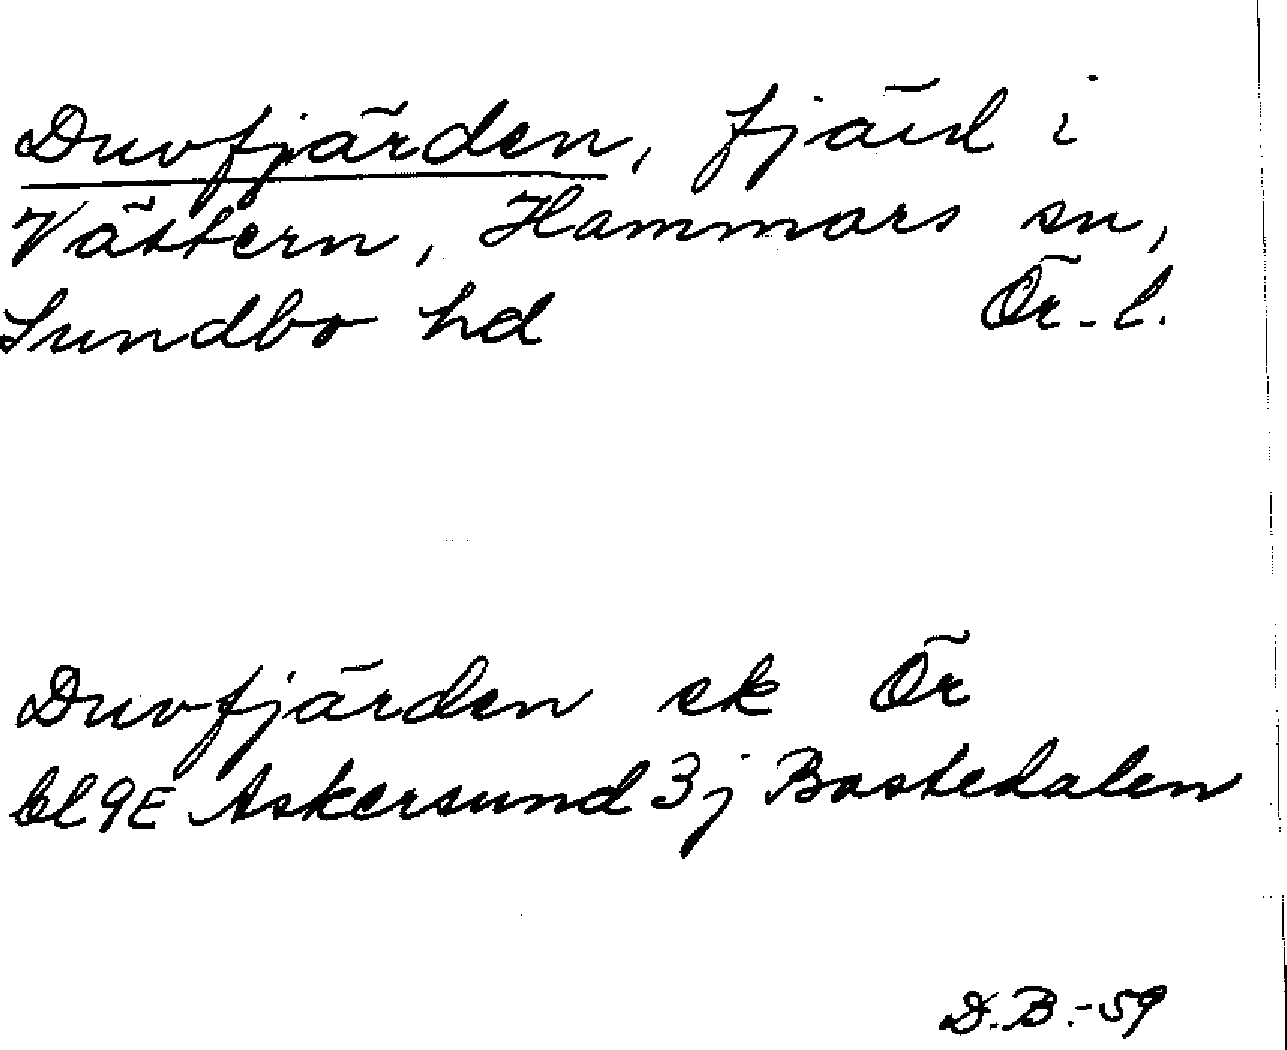 Duvfjärden, fjärd i
Vättern, Hammars sn,
Sundbo hd Ör. l.
Duvfjärden ek Ör
bl 9E Askersund 3j Bastedalen
D.B.-59